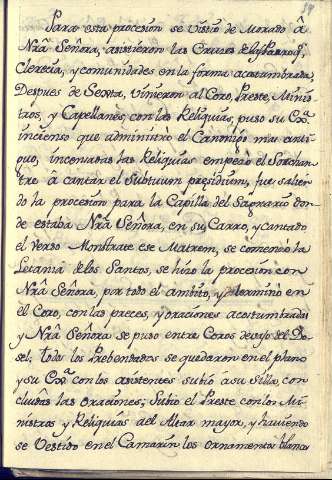 Para esta procesión se Vistió de Morado â
Nrâ Señora, asistieron las Cruces de las Parroqs,
Clerecía, y comunidades en la forma acostumbrada,
Despues de Sexta, Vinieron al Coro, Preste, Minis
tros, y Capellanes, con las Reliquias, puso su Exâ
incienso que administró el Canonigo mas anti
guo, incensadas las Reliquias empezó el Sochan
tre â cantar el Subtuum presidium, fue salien
do la procesión para la Capilla del Sagrario don
de estaba Nrâ Señora, en su Carro, y cantado
el Verso Monstrate ese Matrem, se comenzó la
Letania de los Santos, se hizo la procesion con
Nrâ Señora, por todo el ambito, y terminó en
el Coro, con las preces, y oraciones acostumbradas
y Nrâ Señora se puso entre Coros devajo del Do-
sel, todos los Prebendados se quedaron en el plano
y su Exâ con los asistentes subió â su Silla, con
cluidas las oraciones; Subió el Preste con los Mi-
nistros y Reliquias al Altar mayor, y haviendo
se Vestido en el Camarin los ornamentos blancos